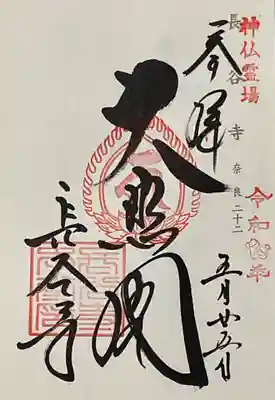 神仏霊場
長谷寺 奈良二十二
令和 年
奉拝
五月廿五日
大悲閣
長谷寺